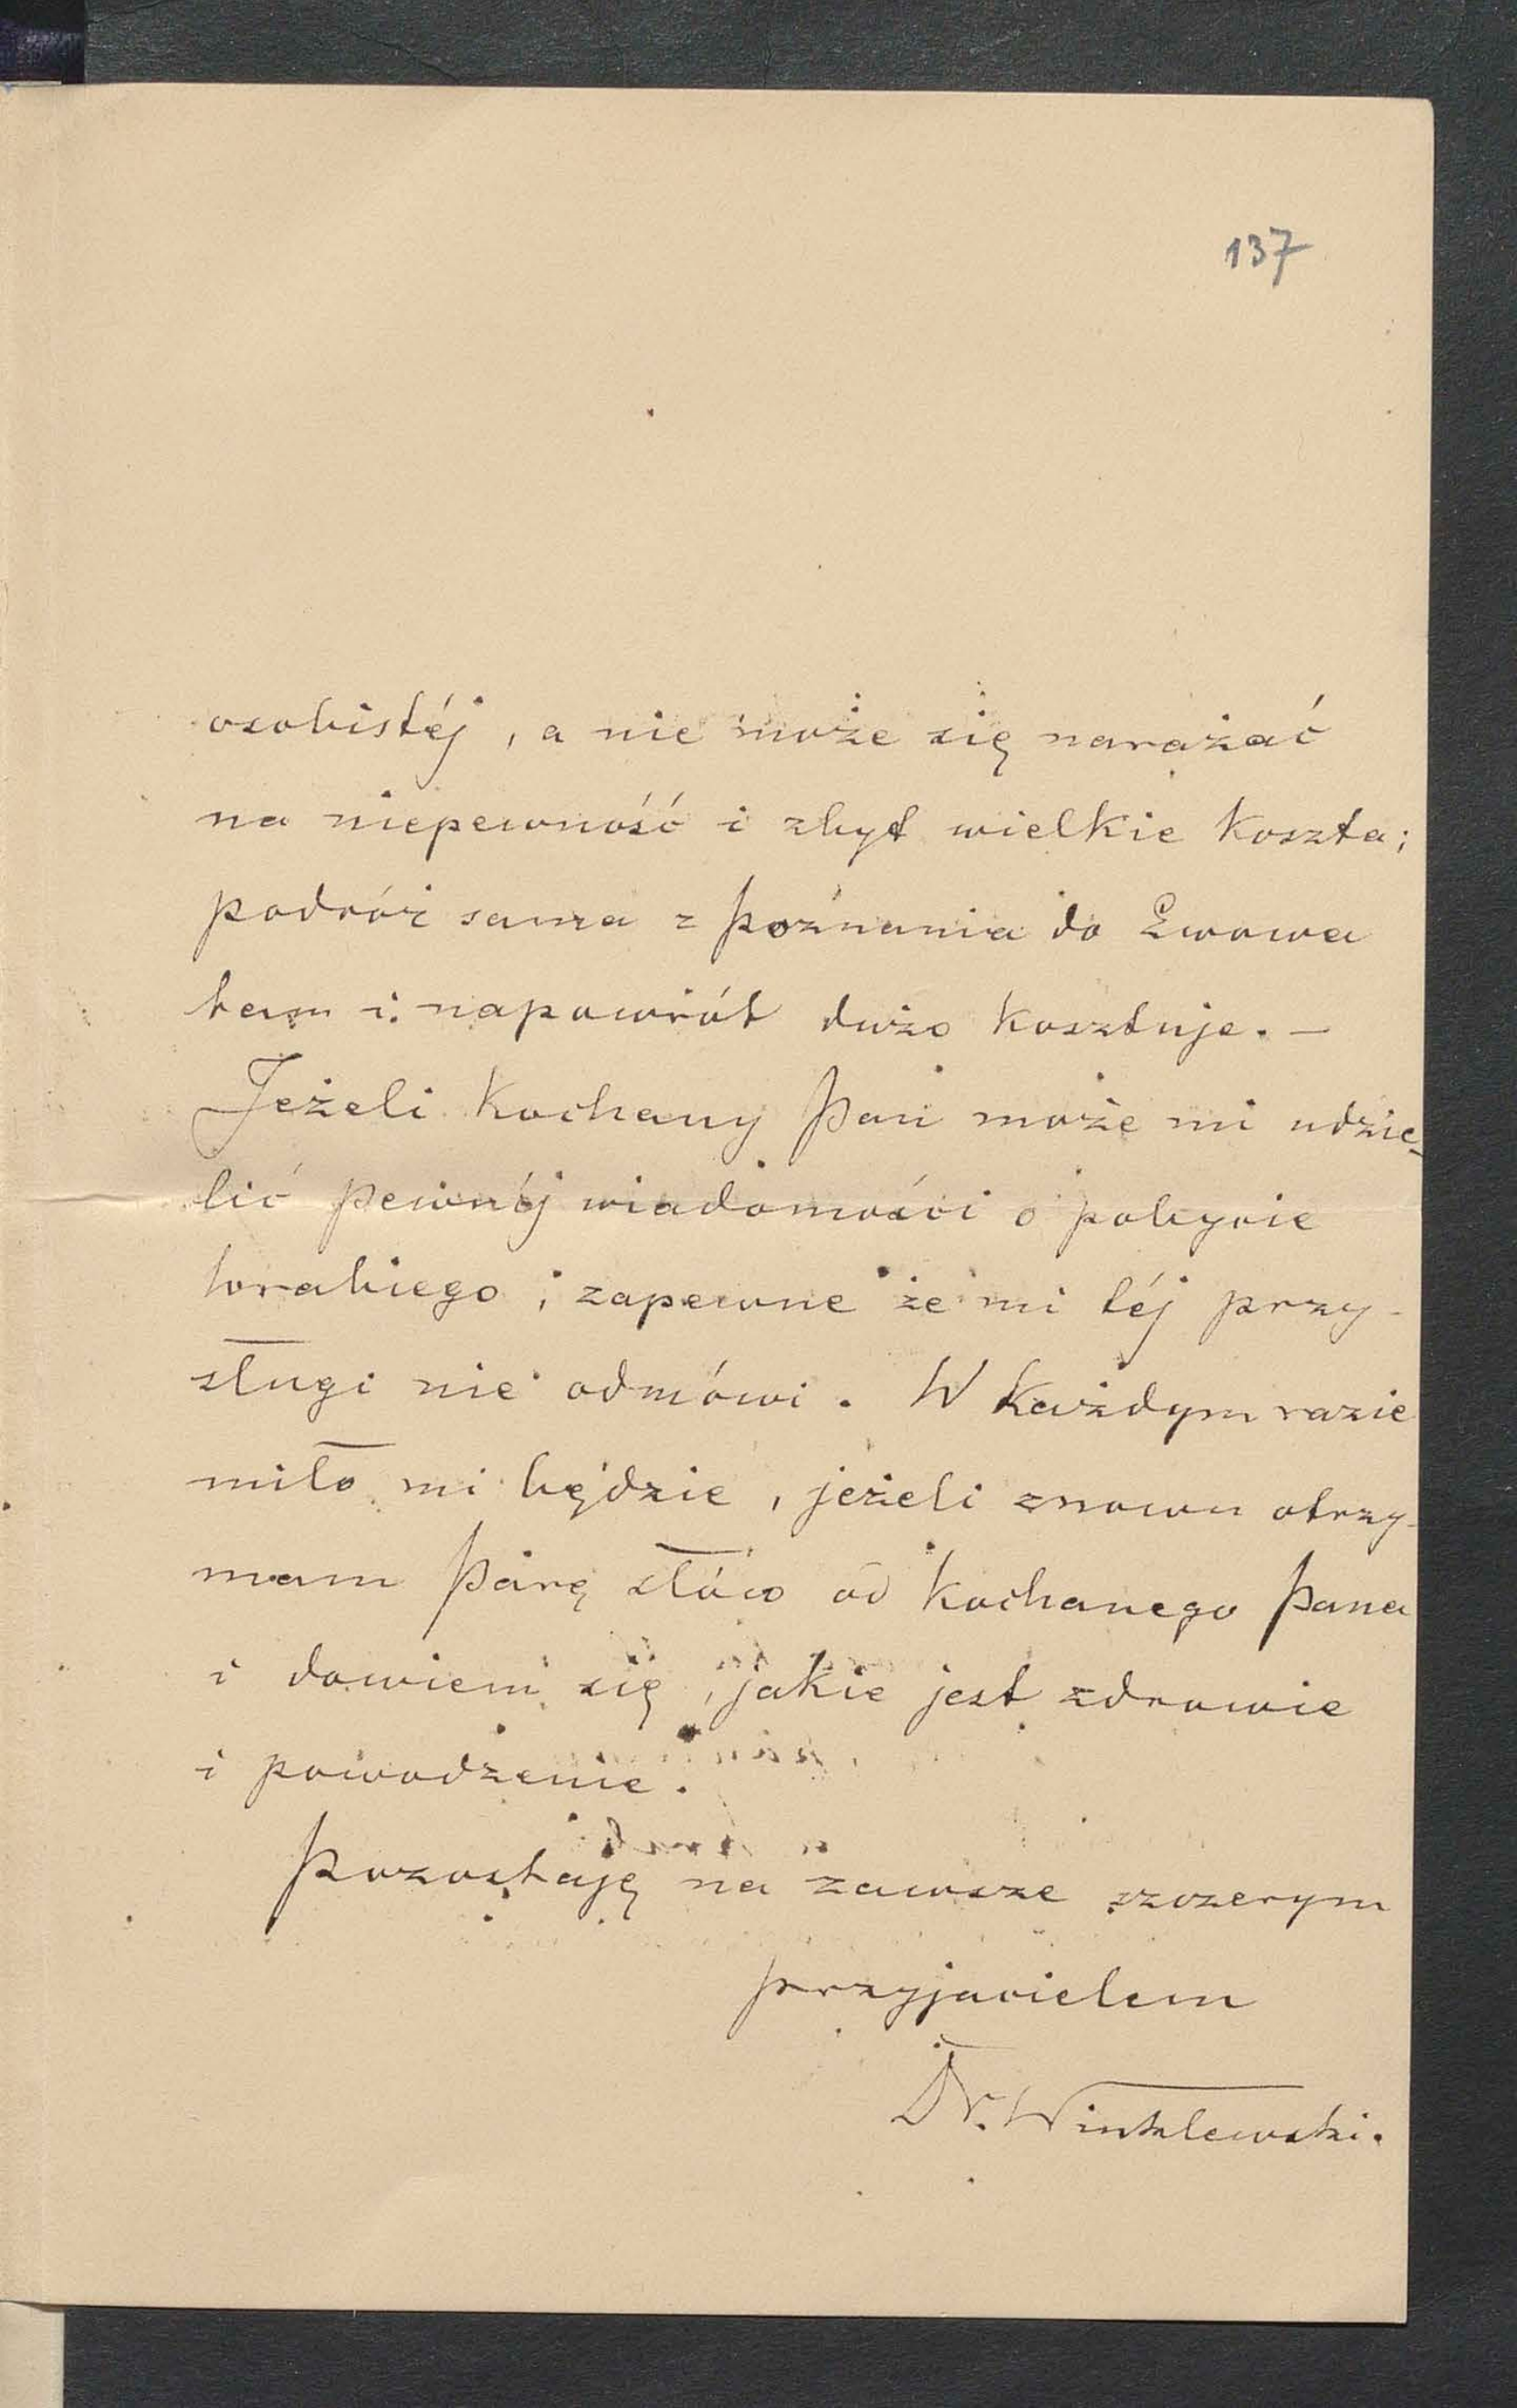 137
osobistéj, a nie może się narażać
na niepewność i zbyt wielkie koszta;
podróż sama z Poznania do Lwowa
tam i napowrót dużo kosztuje. —
Jeżeli Kochany Pan może mi udzie-
lić pewnéj wiadomości o pobycie
hrabiego, zapewne że mi téj przy-
sługi nie odmówi. W każdym razie
miło mi będzie, jeżeli znowu otrzy-
mam parę słów od kochanego Pana
i dowiem się, jakie jest zdrowie
i powodzenie.
Pozostaję na zawsze szczerym
przyjacielem
Dr. Winklewski.